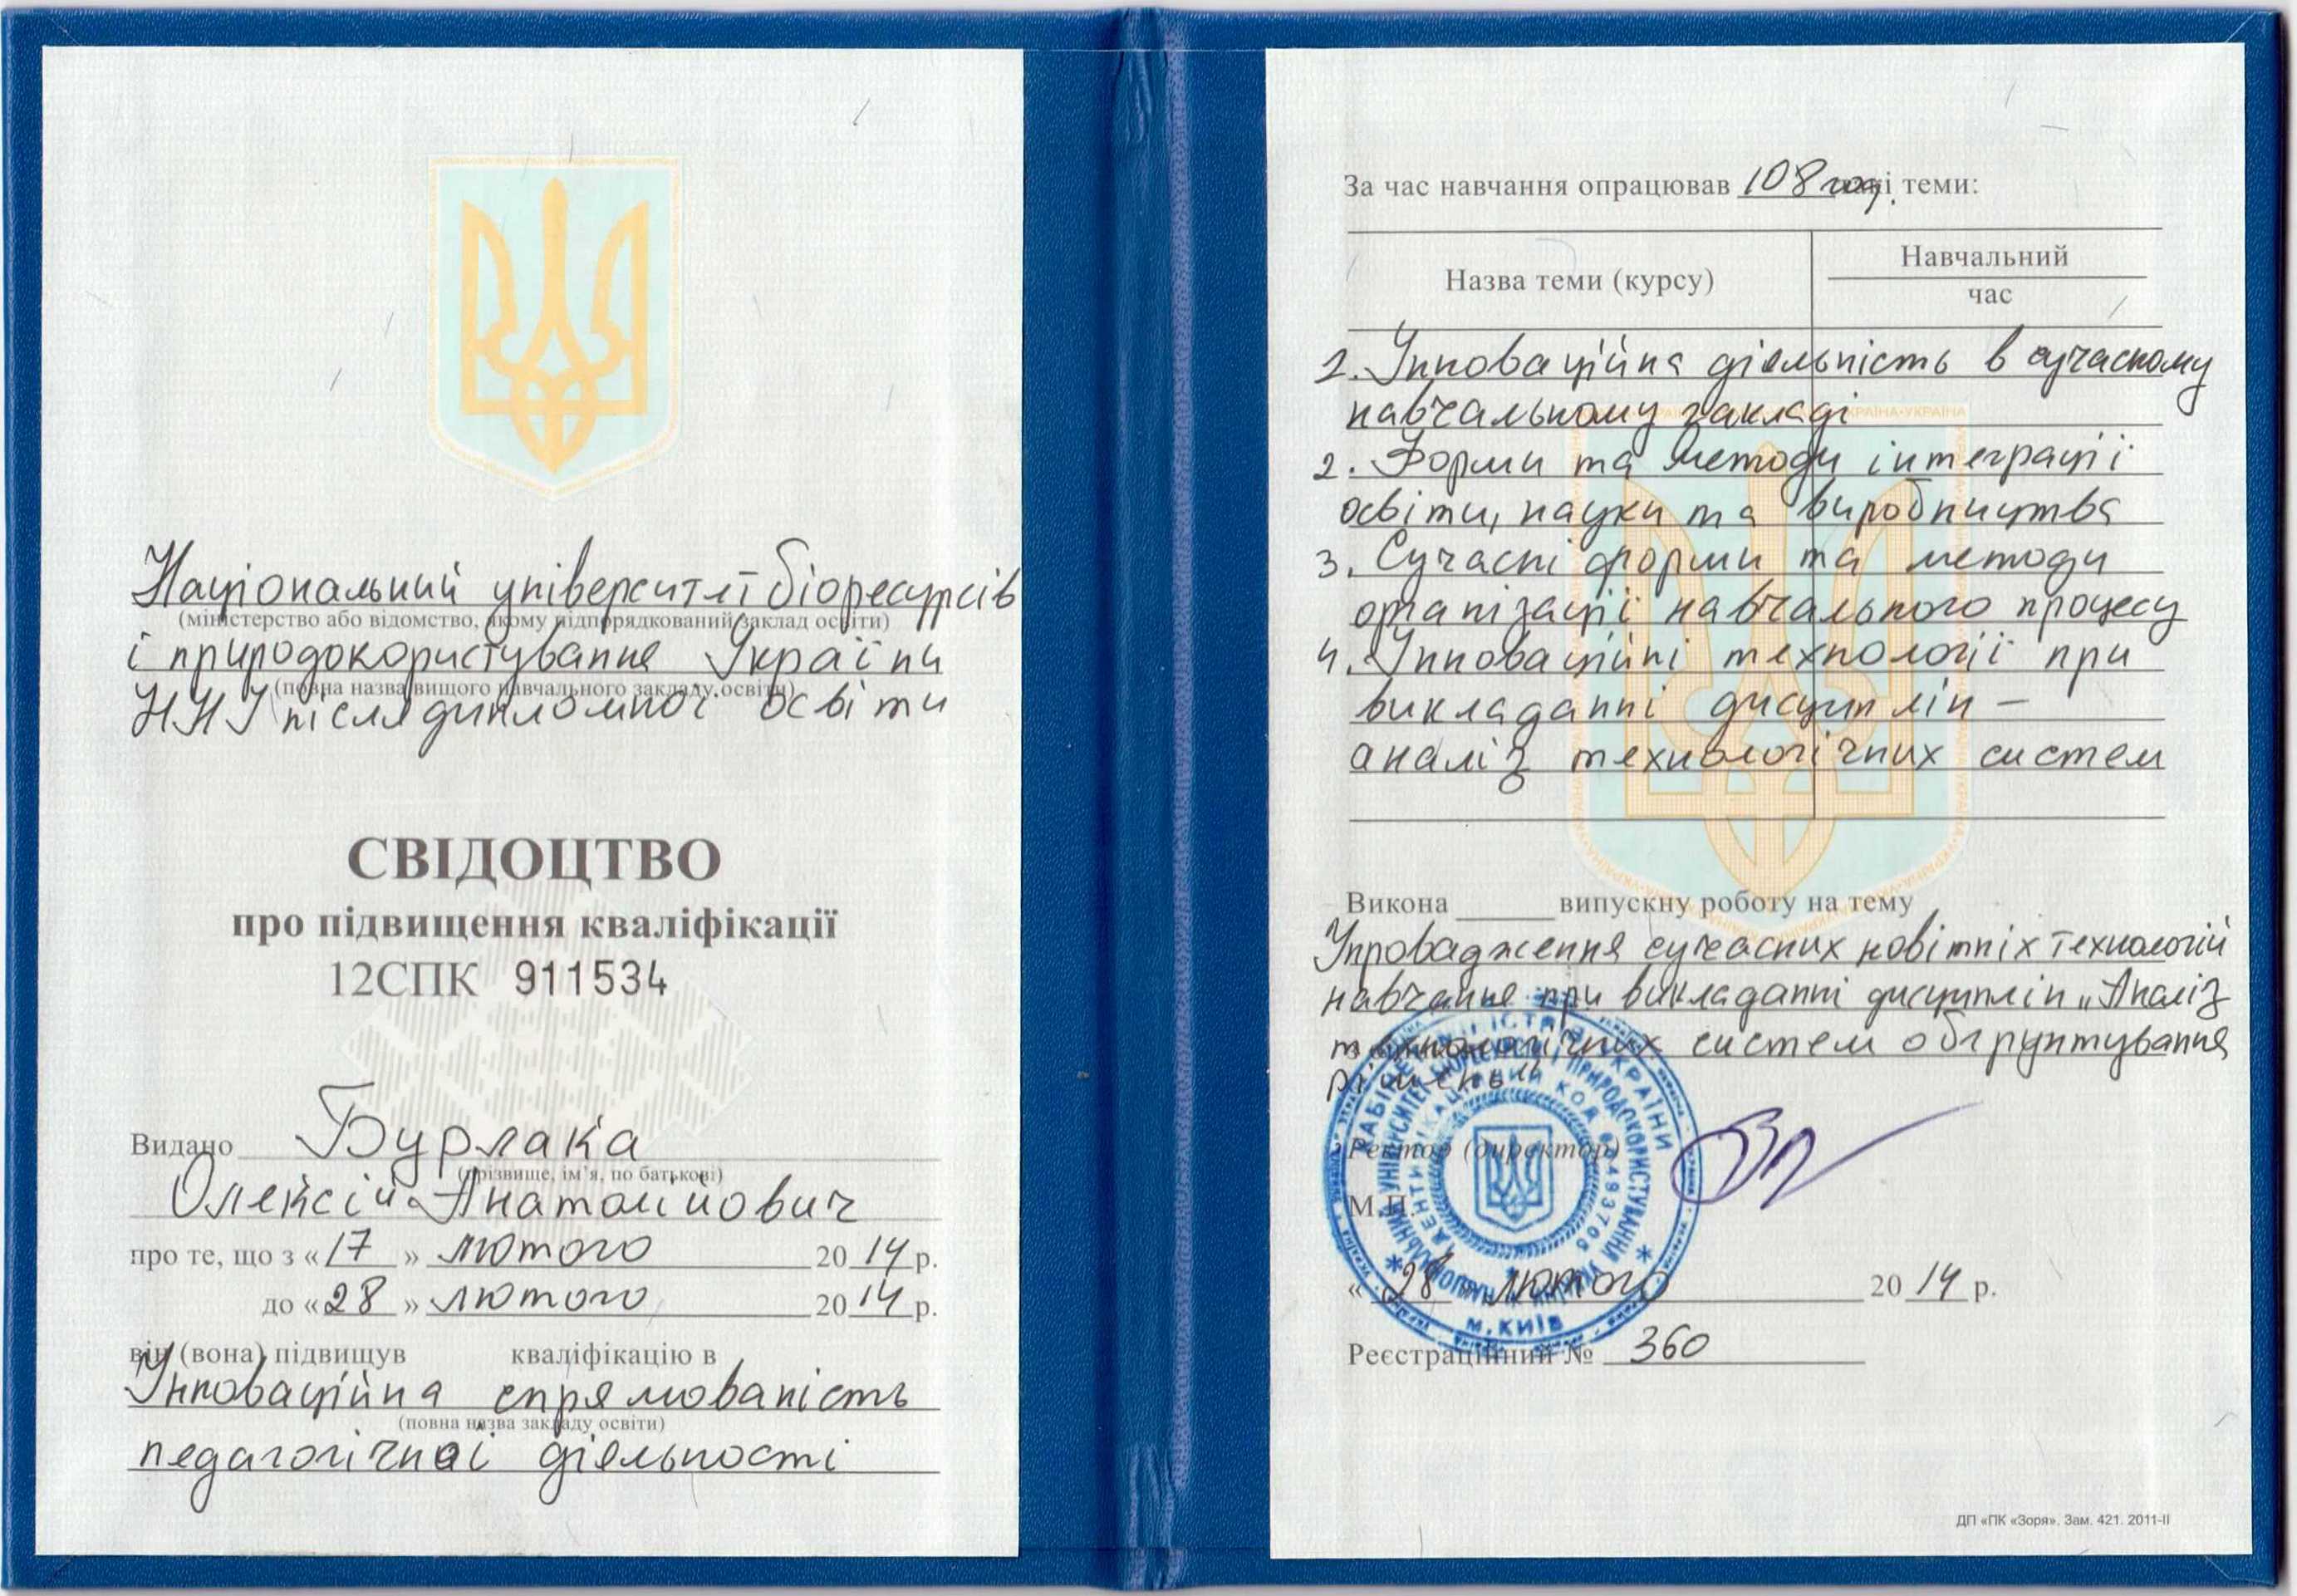 Національний університет біоресурсів
(міністерство або відомство, якому підпорядкований заклад освіти)
і природокористування України
(повна назва вищого навчального закладу освіти)
ННІ післядипломної освіти
СВІДОЦТВО
про підвищення кваліфікації
12СПК 911534
Видано Бурлака
(прізвище, ім’я, по батькові)
Олексій Анатолійович
про те, що з «17» лютого 2014 р.
до «28» лютого 2014 р.
він (вона) підвищув кваліфікацію в
Інноваційна спрямованість
(повна назва закладу освіти)
педагогічної діяльності
За час навчання опрацював 108 год. теми:
Назва теми (курсу)
Навчальний
час
1. Інноваційна діяльність в сучасному
навчальному закладі
2. Форми та методи інтеграції
освіти, науки та виробництва
3. Сучасні форми та методи
організації навчального процесу
4. Інноваційні технології при
викладанні дисциплін –
аналіз технологічних систем
Викона ______ випускну роботу на тему
Упровадження сучасних новітніх технологій
навчання при викладанні дисциплін „Аналіз
технологічних систем обґрунтування
рішень“
Ректор (директор)
М.П.
«28» лютого 2014 р.
м. КИЇВ
Реєстраційний № 360
ДП «ПК «Зоря». Зам. 421. 2011-II